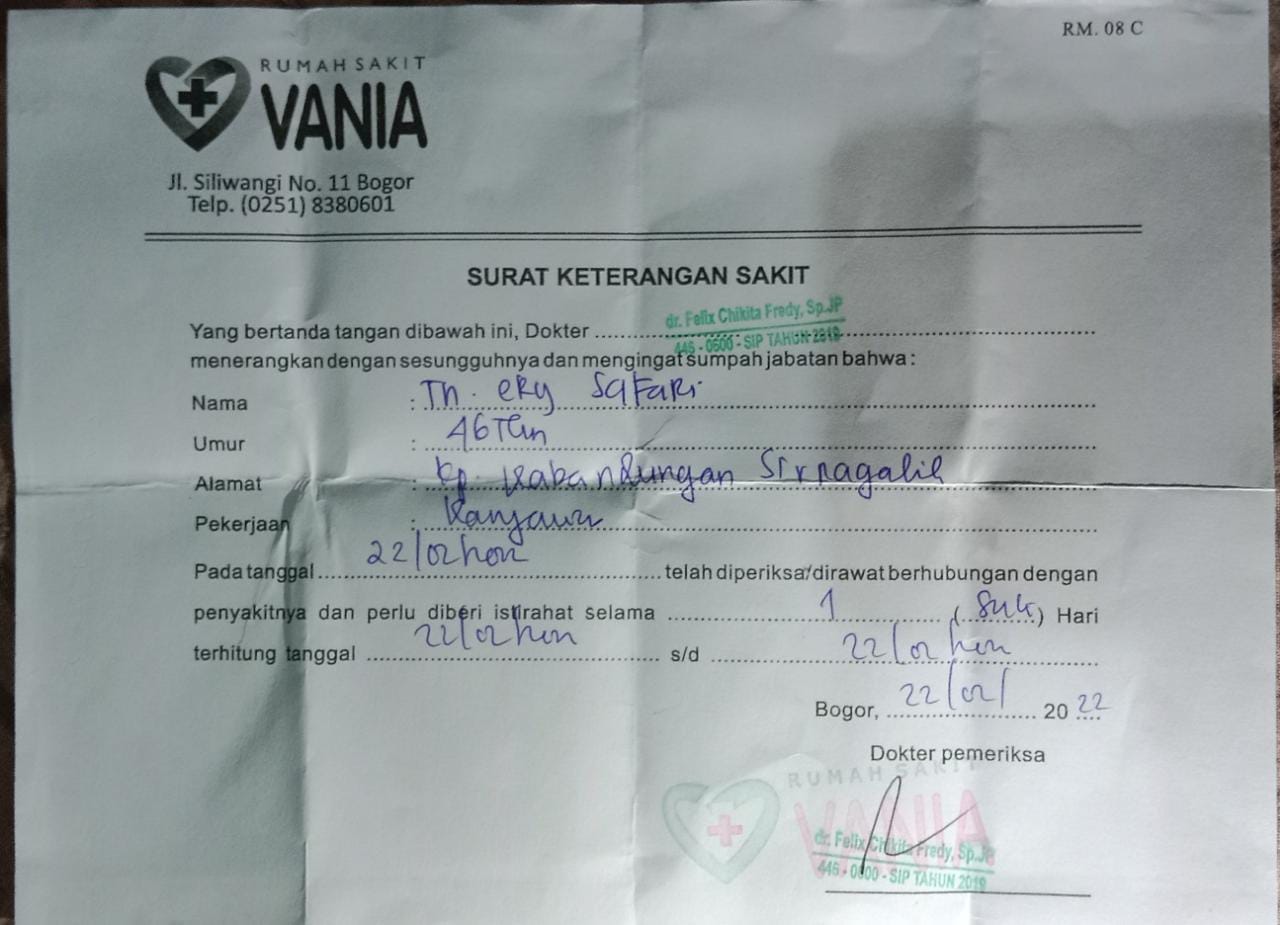 RM. 08 C
RUMAH SAKIT
VANIA
Jl. Siliwangi No. 11 Bogor
Telp. (0251) 8380601
SURAT KETERANGAN SAKIT
dr. Felix Chikita Fredy, Sp.JP
Yang bertanda tangan dibawah ini, Dokter
446 - 0600 - SIP TAHUN 2019
menerangkan dengan sesungguhnya dan mengingat sumpah jabatan bahwa :
Nama : Tn. eky Safari
Umur : 46 Thn
Alamat : Kp. Kabandungan Sirnagalih
Pekerjaan : Karyawan
Pada tanggal 22/02 telah diperiksa/dirawat berhubungan dengan
penyakitnya dan perlu diberi istirahat selama 1 ( ) Hari
terhitung tanggal 22/02 s/d 22/02
Bogor, 22/02/ 2022
Dokter pemeriksa
RUMAH SAKIT
VANIA
dr. Felix Chikita Fredy, Sp.JP
446 - 0600 - SIP TAHUN 2019